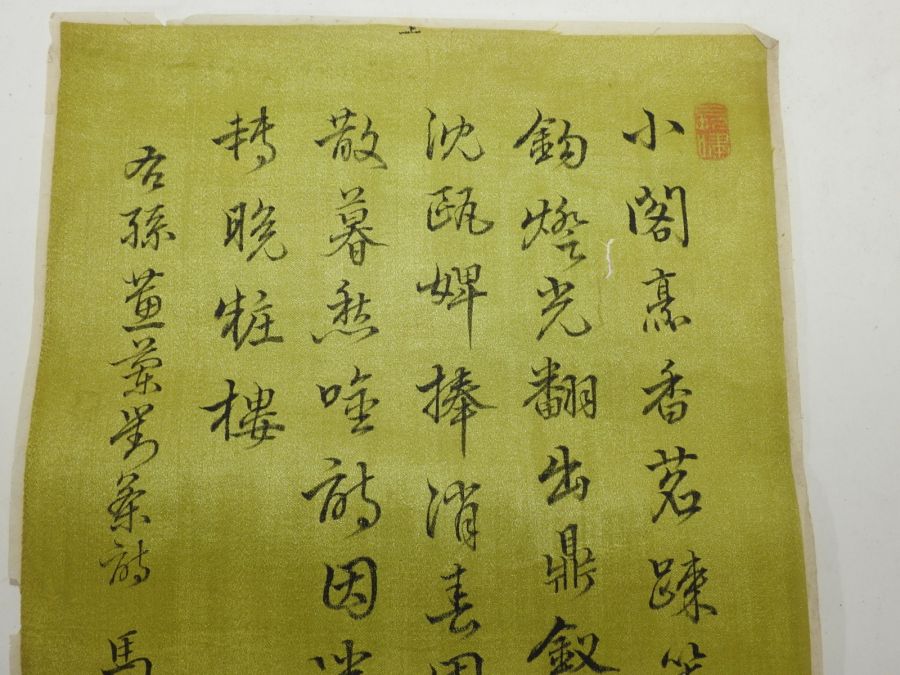 上
小閣烹香茗疎
鈎燈光翻出鼎釵
沈甌婢捧消春困
散暮愁吟詩因坐
轉晚粧樓
右孫蕙蘭對茶詩 馬